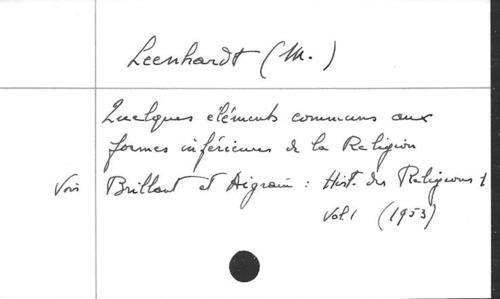 Leenhardt (M.)
Quelques éléments communs aux
formes inférieures de la Religion
Voir Brillant et Aigrain : Hist. des Religions 1
Vol. 1 (1953)